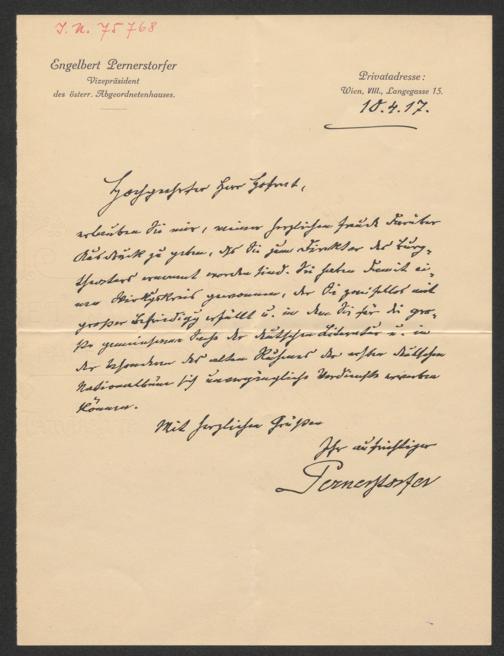 I. N. 75768
Engelbert Pernerstorfer
Vizepräsident
des österr. Abgeordnetenhauses.
Privatadresse:
Wien, VIII., Langegasse 15.
10.4.17.
Hochgeehrter Herr Hofrat,
erlauben Sie mir, meiner herzlichen Freude darüber
Ausdruck zu geben, dß Sie zum Direktor des Burg-
theaters ernannt worden sind. Sie haben damit ei-
nen Wirkgskreis gewonnen, der Sie zweifellos mit
großer Befriedigg erfüllt u. in dem Sie für die gro-
ße gemeinsame Sache der deutschen Literatur u. in
der besonderen des alten Ruhmes der ersten deutschen
Nationalbüne sich unvergängliche Verdienste erwerben
können.
Mit herzlichen Grüßen
Ihr aufrichtiger
Pernerstorfer